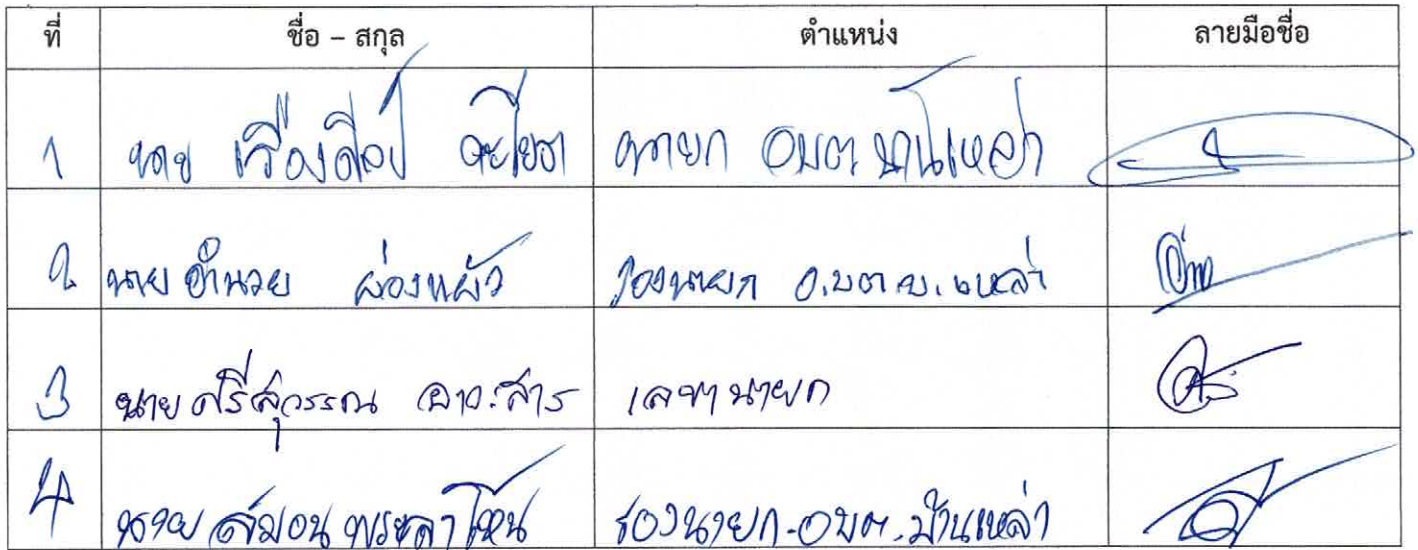 ที่ ชื่อ – สกุล ตำแหน่ง ลายมือชื่อ
1 นาย เรืองศิลป์ นายก อบต บ้านเหล่า
2 นาย อำนวย ผ่องแผ้ว รองนายก อ.บต.บ.เหล่า
3 นายศรีสุวรรณ เลขานายก
4 นาย สมอน รองนายก-อบต.บ้านเหล่า